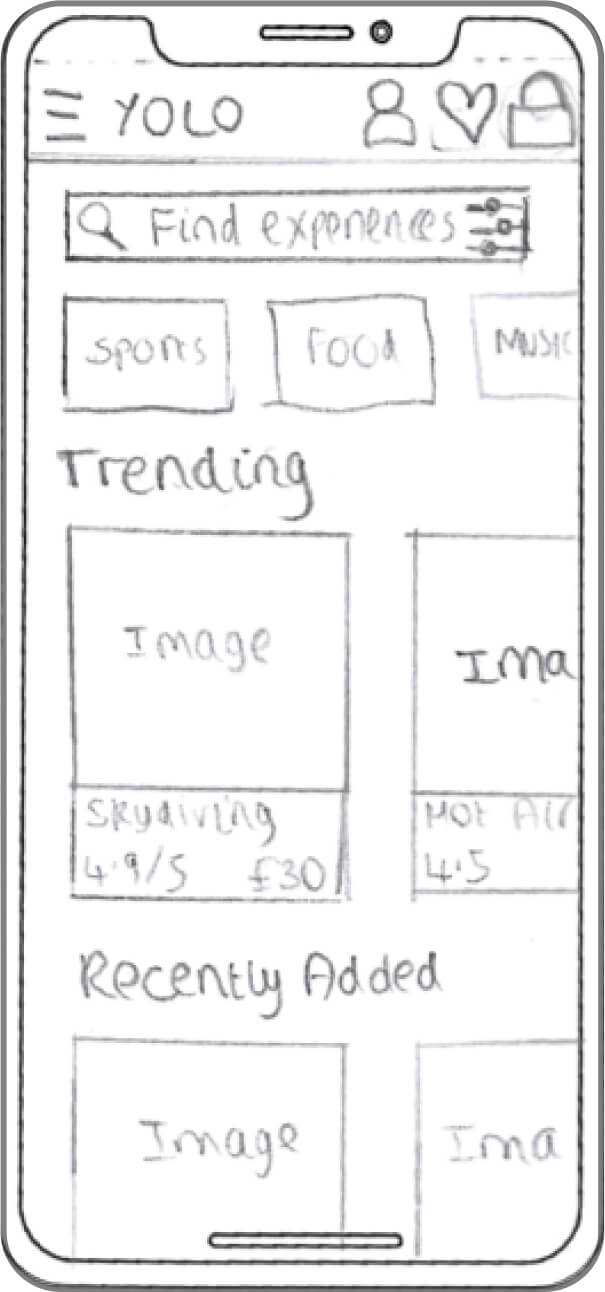 YOLO
Find experiences
Sports Food Music
Trending
Image Ima
Skydiving Hot Air
4.9/5 £30 4.5
Recently Added
Image Ima